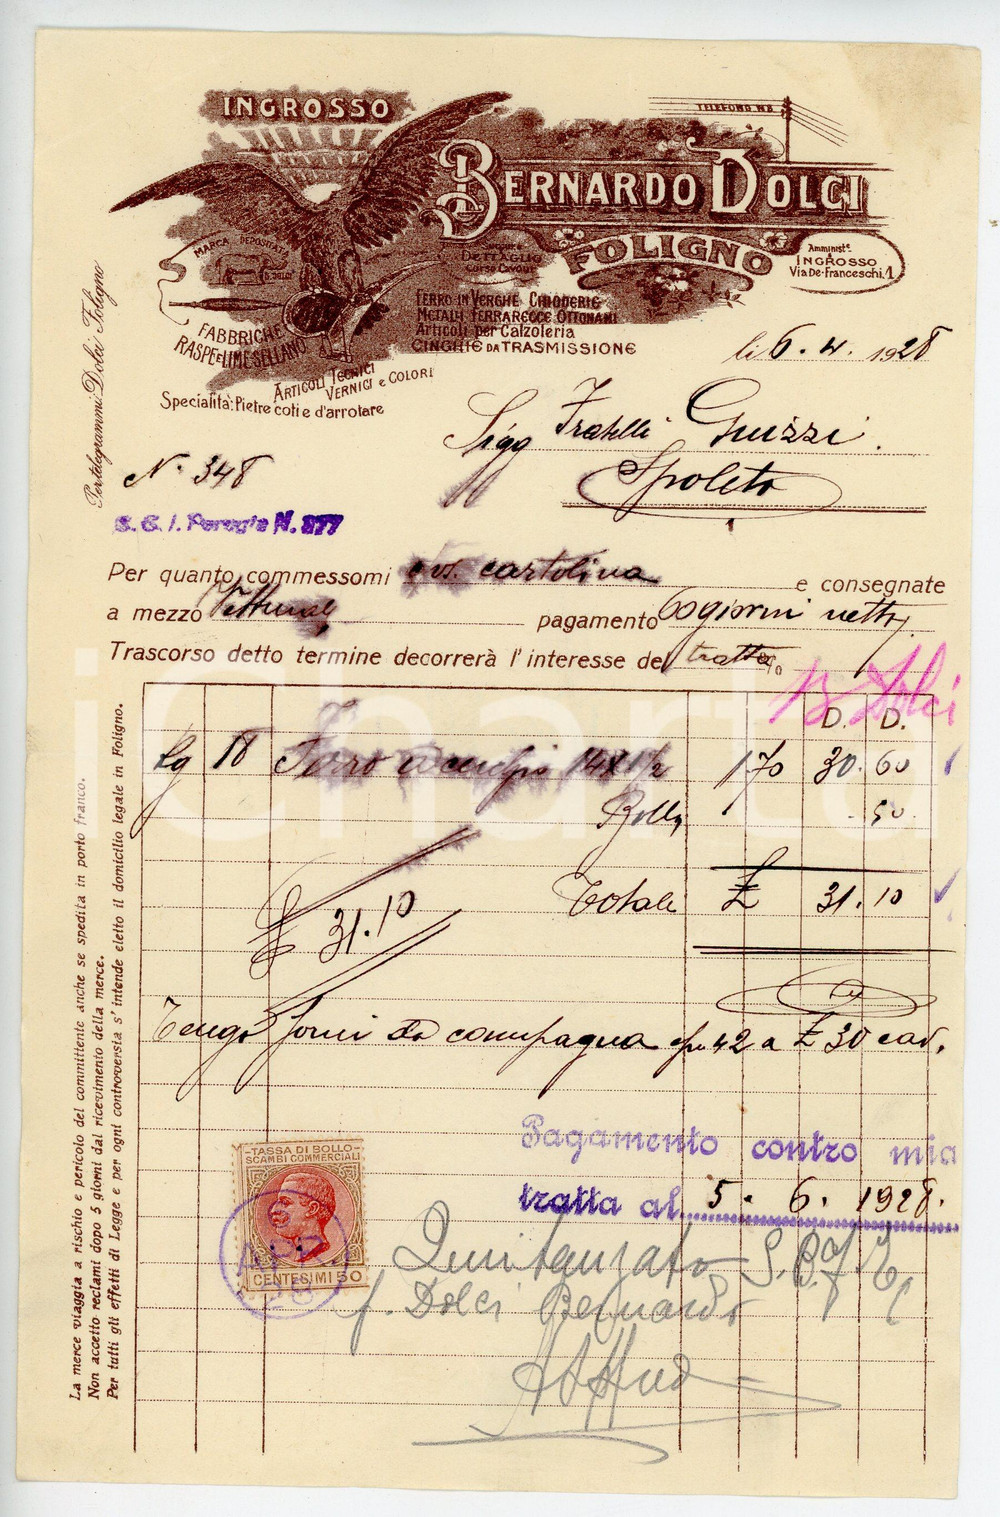 INGROSSO
TELEFONO N. 8
BERNARDO DOLCI
FOLIGNO
MARCA DEPOSITATA
B. DOLCI
DETTAGLIO
Corso Cavour
Amministe.
INGROSSO
Via De-Franceschi, 1
FERRO IN VERGHE CHIODERIE
METALLI FERRARECCE OTTONAMI
Articoli per Calzoleria
CINGHIE DA TRASMISSIONE
FABBRICHE
RASPE e LIME SELLANO
ARTICOLI TECNICI
VERNICI e COLORI
Specialità: Pietre coti e d'arrotare
Pertelegrammi: Dolci Foligno
li 6. 4. 1928
Sigg Fratelli Guizzi.
Spoleto
N. 348
C. C. I. Perugia N. 377
Per quanto commessomi vs. cartolina e consegnate
a mezzo Vetturale pagamento 60 giorni netto,
Trascorso detto termine decorrerà l'interesse del tratta %
B Dolci
D. D.
Kg 18 Ferro a cerchio 14X1 1/2 170 30. 60
Bollo . 50.
Totale £ 31. 10
£ 31. 10
Tengo forni da campagna 42 a £ 30 cad.
Pagamento contro mia
tratta al 5. 6. 1928.
TASSA DI BOLLO
SCAMBI COMMERCIALI
CENTESIMI 50
6 APR 28
Quietanzato S. B. f. E
f. Dolci Bernardo
La merce viaggia a rischio e pericolo del committente anche se spedita in porto franco.
Non accetto reclami dopo 5 giorni dal ricevimento della merce.
Per tutti gli effetti di Legge e per ogni controversia s'intende eletto il domicilio legale in Foligno.
iCharta